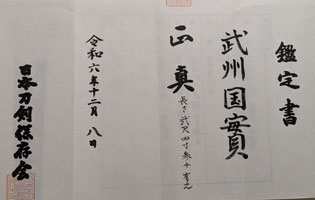 鑑定書
武州国寳
正真
長さ弐尺四寸参分有之
令和六年十二月八日
日本刀剣保存会